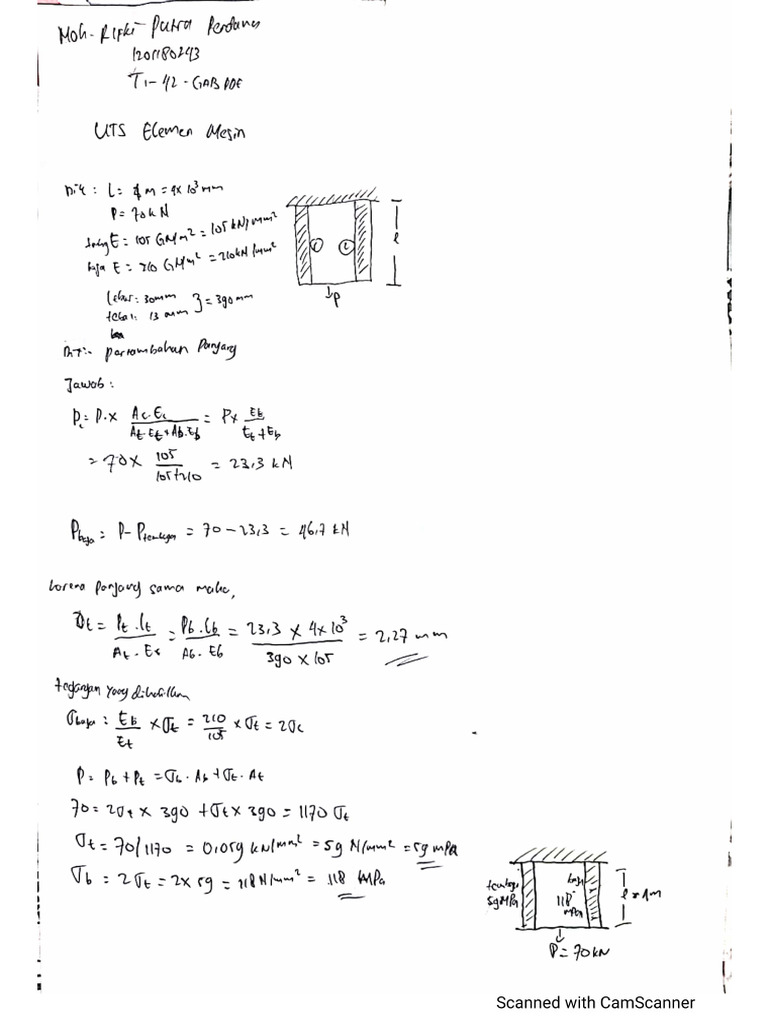 Moh. Rifki Putra Perdana
1201180243
T1-42-GAB PDE
UTS Elemen Mesin
Dik : L = 4 m = 4 x 10³ mm
P = 70 kN
E = 105 GN/m² = 105 kN/mm²
baja E = 210 GN/m² = 210 kN/mm²
Lebar : 30mm
tebal : 13 mm } = 390 mm
1 2 l
P
Dit :- pertambahan Panjang
Jawab :
P = P x Ac.Ec / At.Et + Ab.Eb = P x Eb / Et + Eb
= 70 x 105 / 105+210 = 23,3 kN
Pbaja = P - Ptembaga = 70 - 23,3 = 46,7 kN
karena panjang sama maka,
δt = Pt . lt / At . Et = Pb . lb / Ab . Eb = 23,3 x 4x10³ / 390 x 105 = 2,27 mm
tegangan yang dihasilkan
σbaja : Eb / Et x σt = 210 / 105 x σt = 2σt
P = Pb + Pt = σb . Ab + σt . At
70 = 2σt x 390 + σt x 390 = 1170 σt
σt = 70/1170 = 0,059 kN/mm² = 59 N/mm² = 59 mPa
σb = 2σt = 2 x 59 = 118 N/mm² = 118 MPa
tembaga
59 MPa
baja
118
mPa
P = 70 kN
Scanned with CamScanner